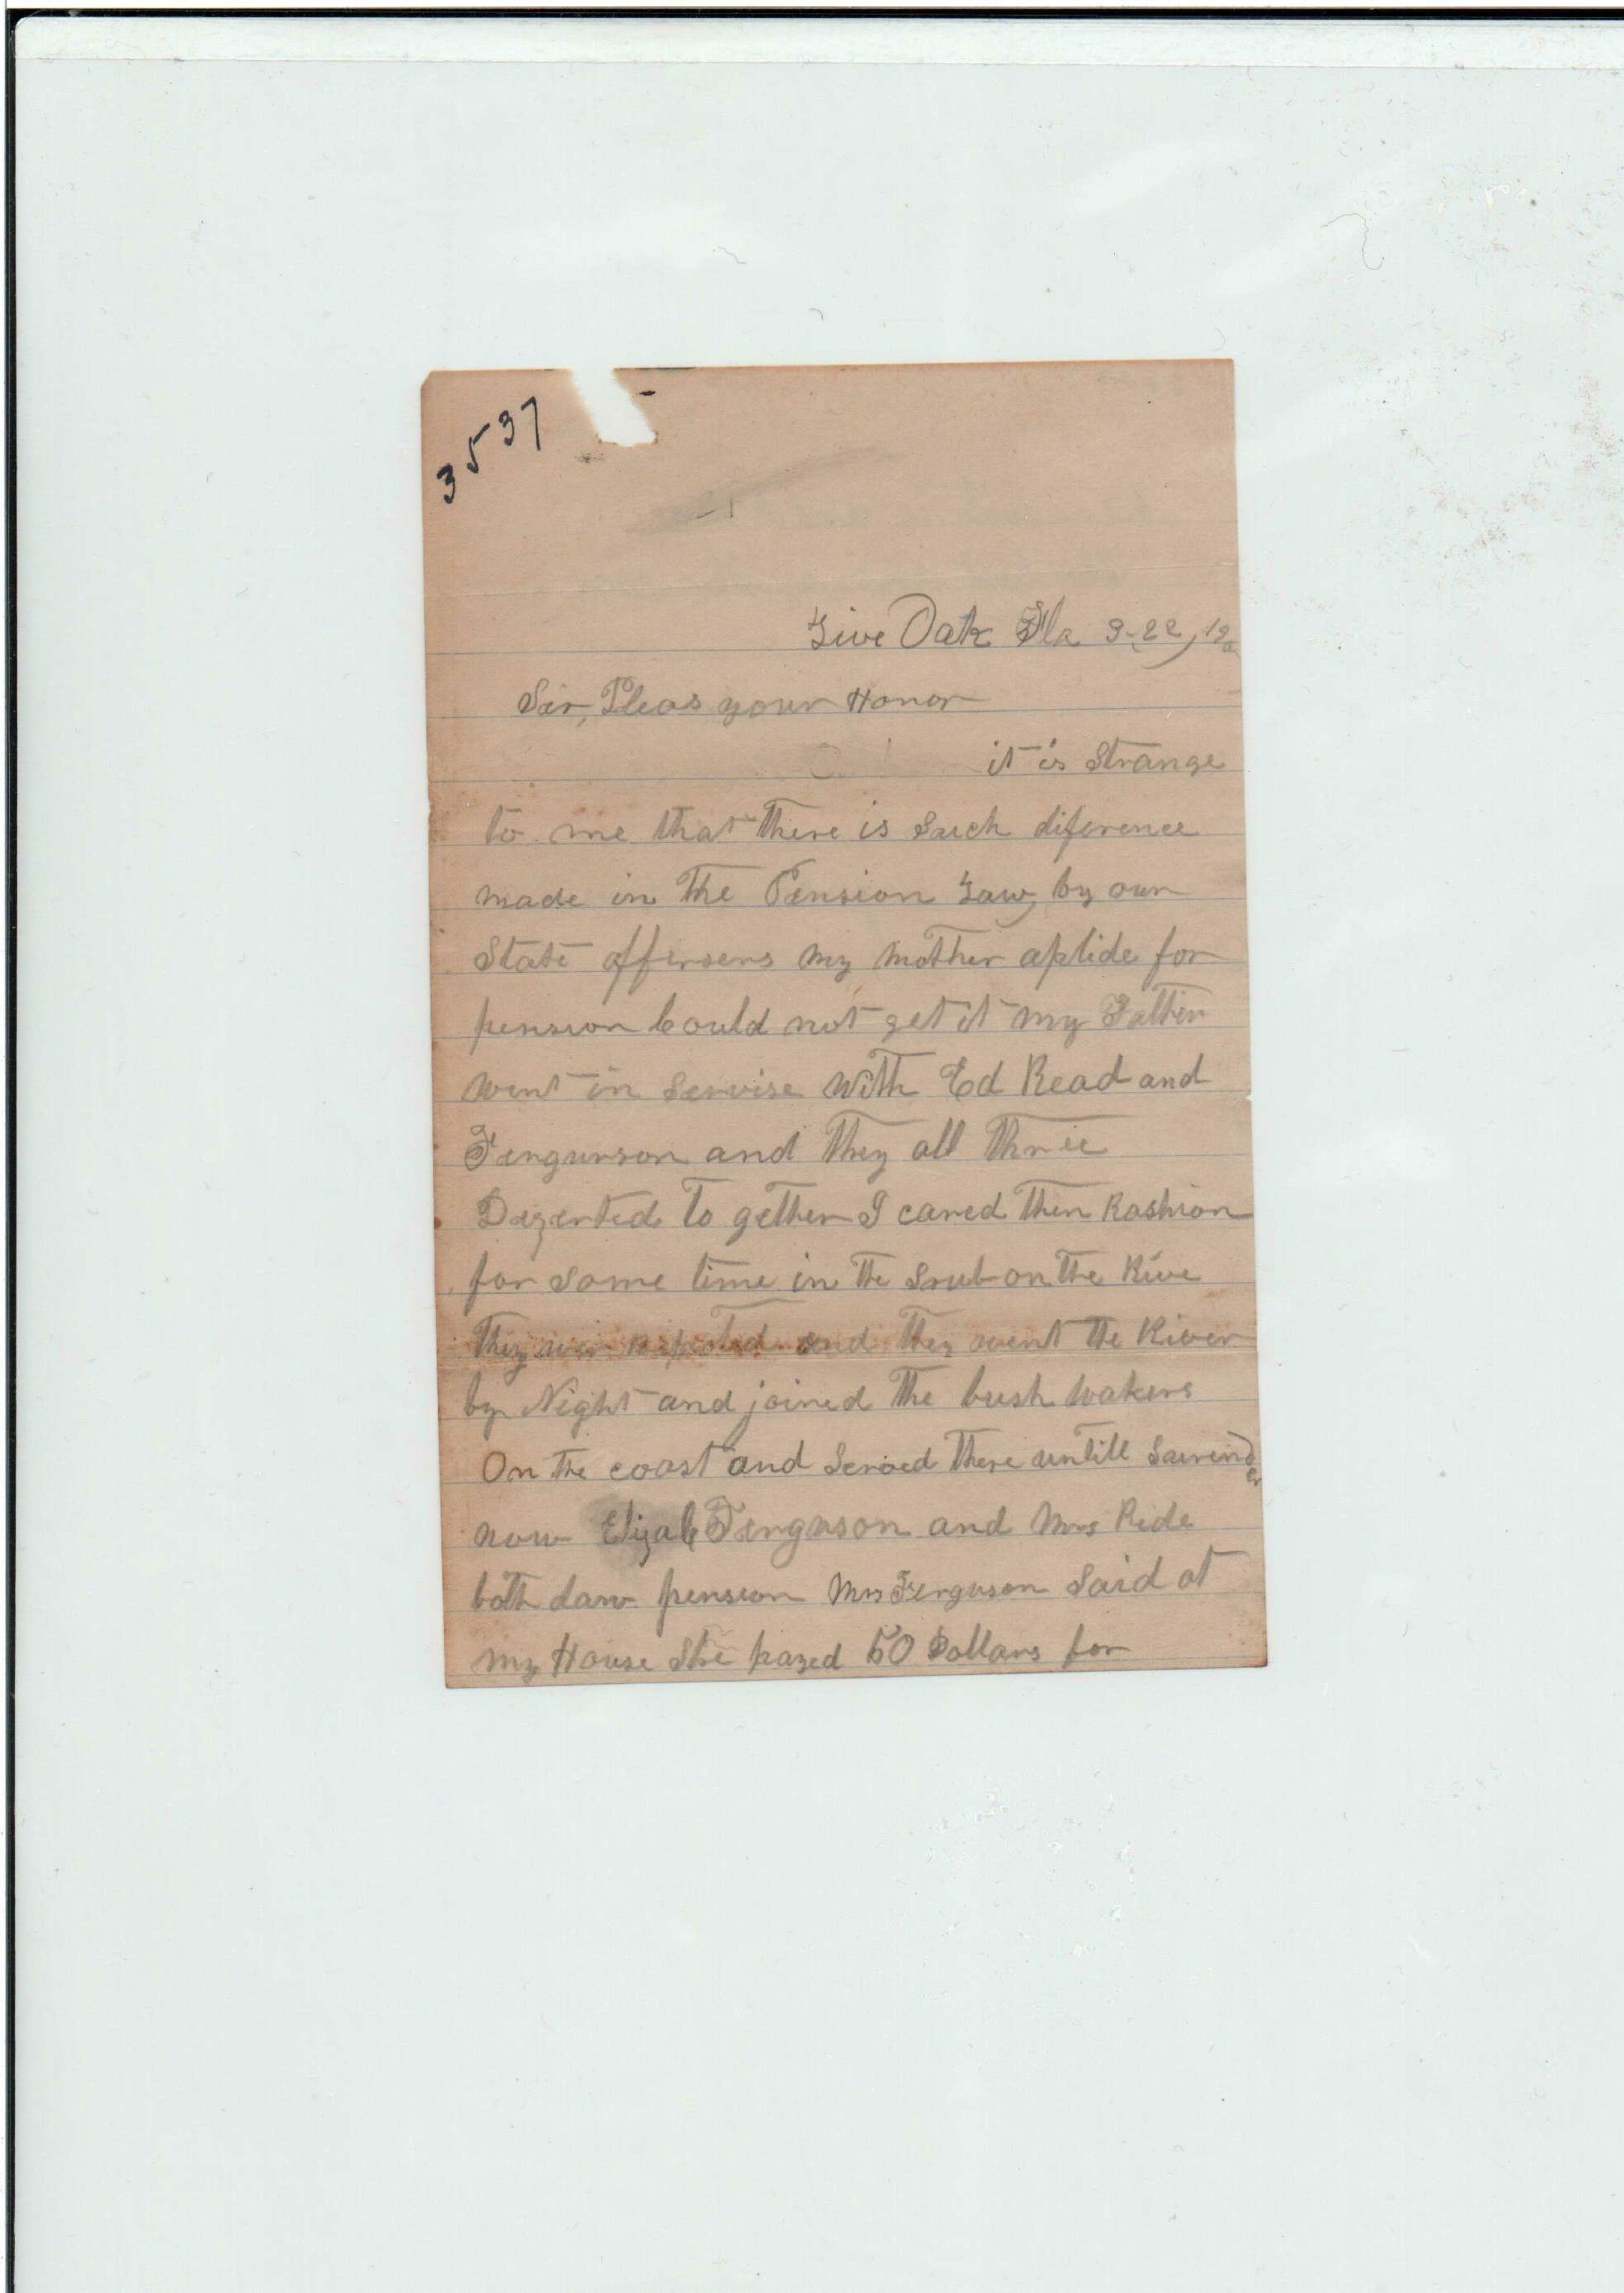 3537
Live Oak Fla 3-22, 19
Sir, Pleas your Honor
it is Strange
to me that There is Such diference
made in The Pension Law, by our
State offersers my mother aplide for
pension Could not get it my Father
went in Servise With Ed Read and
Fergurson and They all Three
Dezerted To gether I cared Then Rashion
for Some time in The Srub on The Rive
They wer reported and They went The River
by Night and joined The bush wakers
On The coast and Served There untill Surender
now Elizab Ferguson and Mrs Ride
both darw pension Mrs Ferguson Said at
my House She payed 50 Dollars for